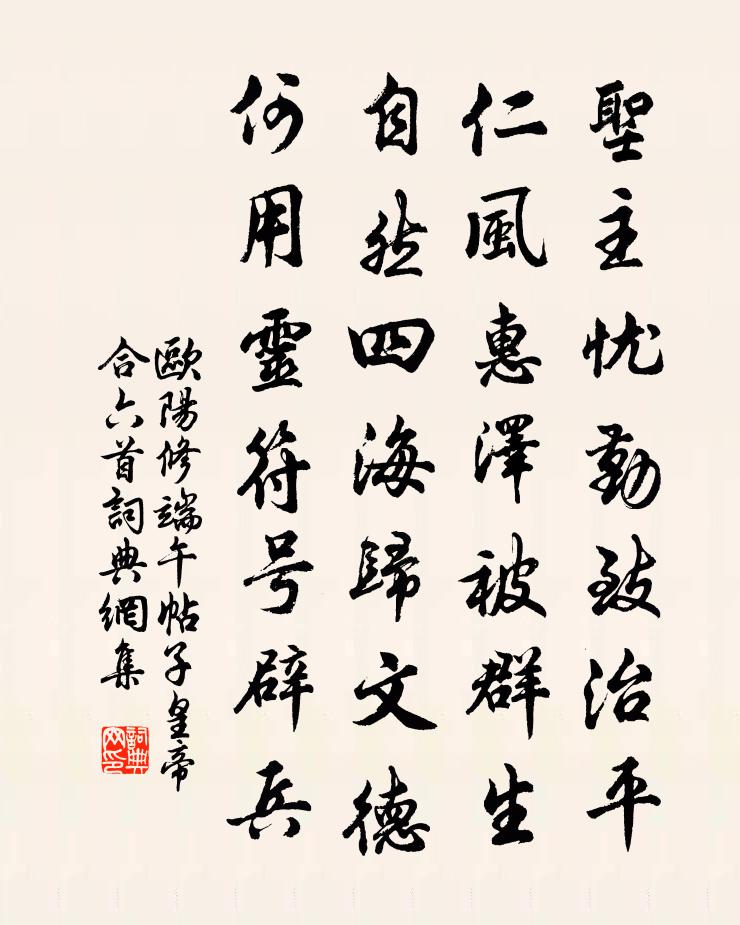 聖主忧勤致治平
仁風惠澤被群生
自然四海歸文德
何用靈符号辟兵
歐陽修端午帖子皇帝
合六首詞典網集
詞典网印